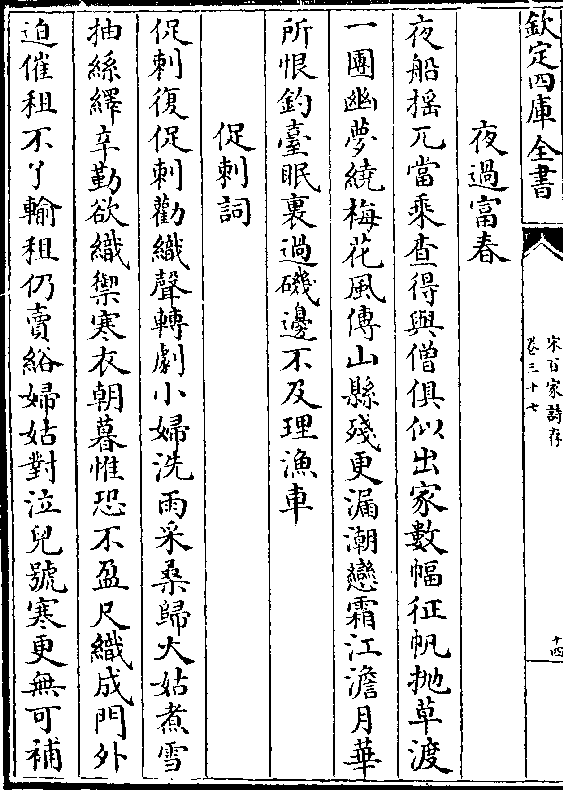 欽定四庫全書
宋百家詩存
卷三十七
十四
夜過富春
夜船揺兀當乘查得與僧俱似出家數幅征帆抛草渡
一團幽夢繞梅花風傳山縣殘更漏潮戀霜江澹月華
所恨釣臺眠裏過磯邊不及理漁車
促刺詞
促刺復促刺勸織聲轉劇小婦洗雨采桑歸大姑煮雪
抽絲繹辛勤欲織禦寒衣朝暮惟恐不盈尺織成門外
迫催租不了輸租仍賣綌婦姑對泣兒號寒更無可補